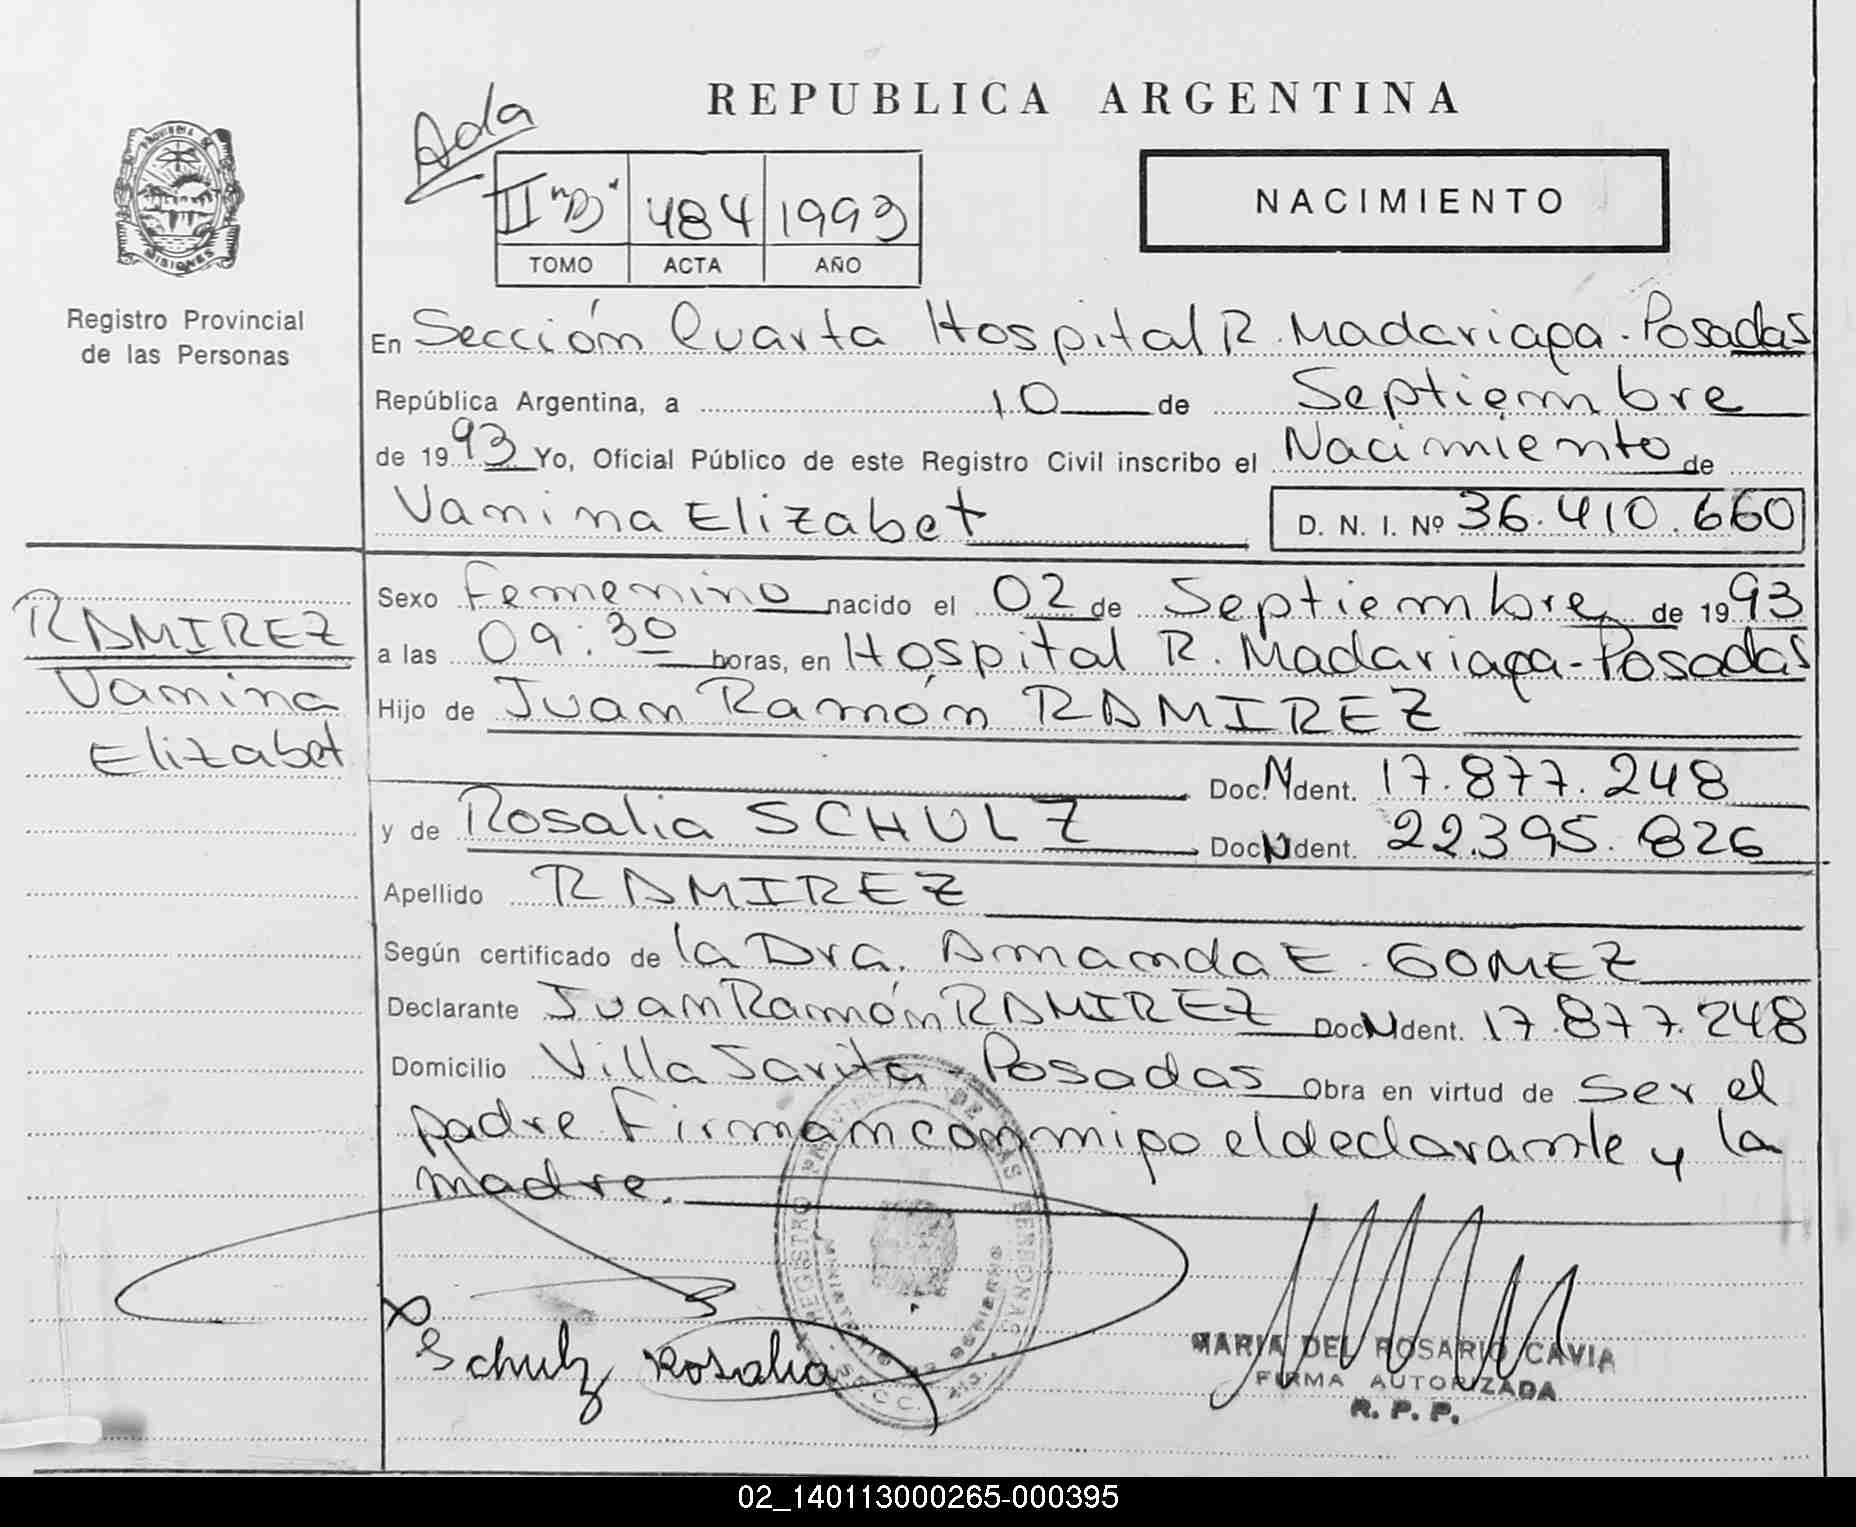 REPUBLICA ARGENTINA
Ada
NACIMIENTO
PROVINCIA DE MISIONES
II "B" 484 1993
TOMO ACTA AÑO
Registro Provincial
de las Personas
En Sección Cuarta Hospital R. Madariaga - Posadas
República Argentina, a 10 de Septiembre
de 1993 Yo, Oficial Público de este Registro Civil inscribo el Nacimiento de
Vanina Elizabet D. N. I. Nº 36.410.660
RAMIREZ
Vanina
Elizabet
Sexo Femenino nacido el 02 de Septiembre de 1993
a las 09:30 horas, en Hospital R. Madariaga - Posadas
Hijo de Juan Ramón RAMIREZ
Doc. N Ident. 17.877.248
y de Rosalia SCHULZ Doc N Ident. 22.395.826
Apellido RAMIREZ
Según certificado de la Dra. Amanda E. GOMEZ
Declarante Juan Ramón RAMIREZ Doc N Ident. 17.877.248
Domicilio Villa Sarita - Posadas Obra en virtud de ser el
padre Firman conmigo el declarante y la
madre.
REGISTRO PROVINCIAL DE LAS PERSONAS
MINISTERIO DE GOBIERNO
Schulz Rosalia
MARIA DEL ROSARIO CAVIA
FIRMA AUTORIZADA
R. P. P.
02_140113000265-000395